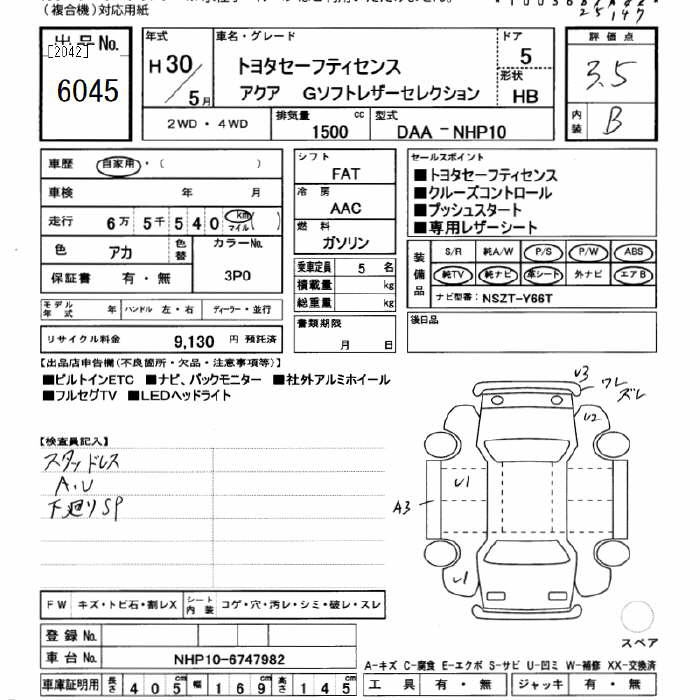 (複合機)対応用紙
出品No.
[2042]
6045
年式
H30/5月
車名・グレード
トヨタセーフティセンス
アクア Gソフトレザーセレクション
ドア
5
形状
HB
評価点
3.5
内装
B
2WD・4WD
排気量
1500 cc
型式
DAA-NHP10
車歴 自家用・( )
車検 年 月
走行 6万5千540 km マイル ( )
色 アカ
色替
カラーNo.
3P0
保証書 有・無
モデル年式 年
ハンドル 左・右
ディーラー・並行
リサイクル料金 9,130 円 預託済
シフト
FAT
冷房
AAC
燃料
ガソリン
乗車定員 5 名
積載量 kg
総重量 kg
書類期限
月 日
セールスポイント
■トヨタセーフティセンス
■クルーズコントロール
■プッシュスタート
■専用レザーシート
装備品
S/R 純A/W P/S P/W ABS
純TV 純ナビ 革シート 外ナビ エアB
ナビ型番: NSZT-Y66T
後日品
【出品店申告欄(不良箇所・欠品・注意事項等)】
■ビルトインETC ■ナビ、バックモニター ■社外アルミホイール
■フルセグTV ■LEDヘッドライト
【検査員記入】
スタッドレス
A.U
下廻りSP
U3 ワレ
ズレ
U2
U1
A3
U1
スペア
FW キズ・トビ石・割レX
シート内装 コゲ・穴・汚レ・シミ・破レ・スレ
登録No.
車台No. NHP10-6747982
車庫証明用 長さ 405cm 幅 169cm 高さ 145cm
A-キズ C-腐食 E-エクボ S-サビ U-凹ミ W-補修 XX-交換済
工具 有・無 ジャッキ 有・無